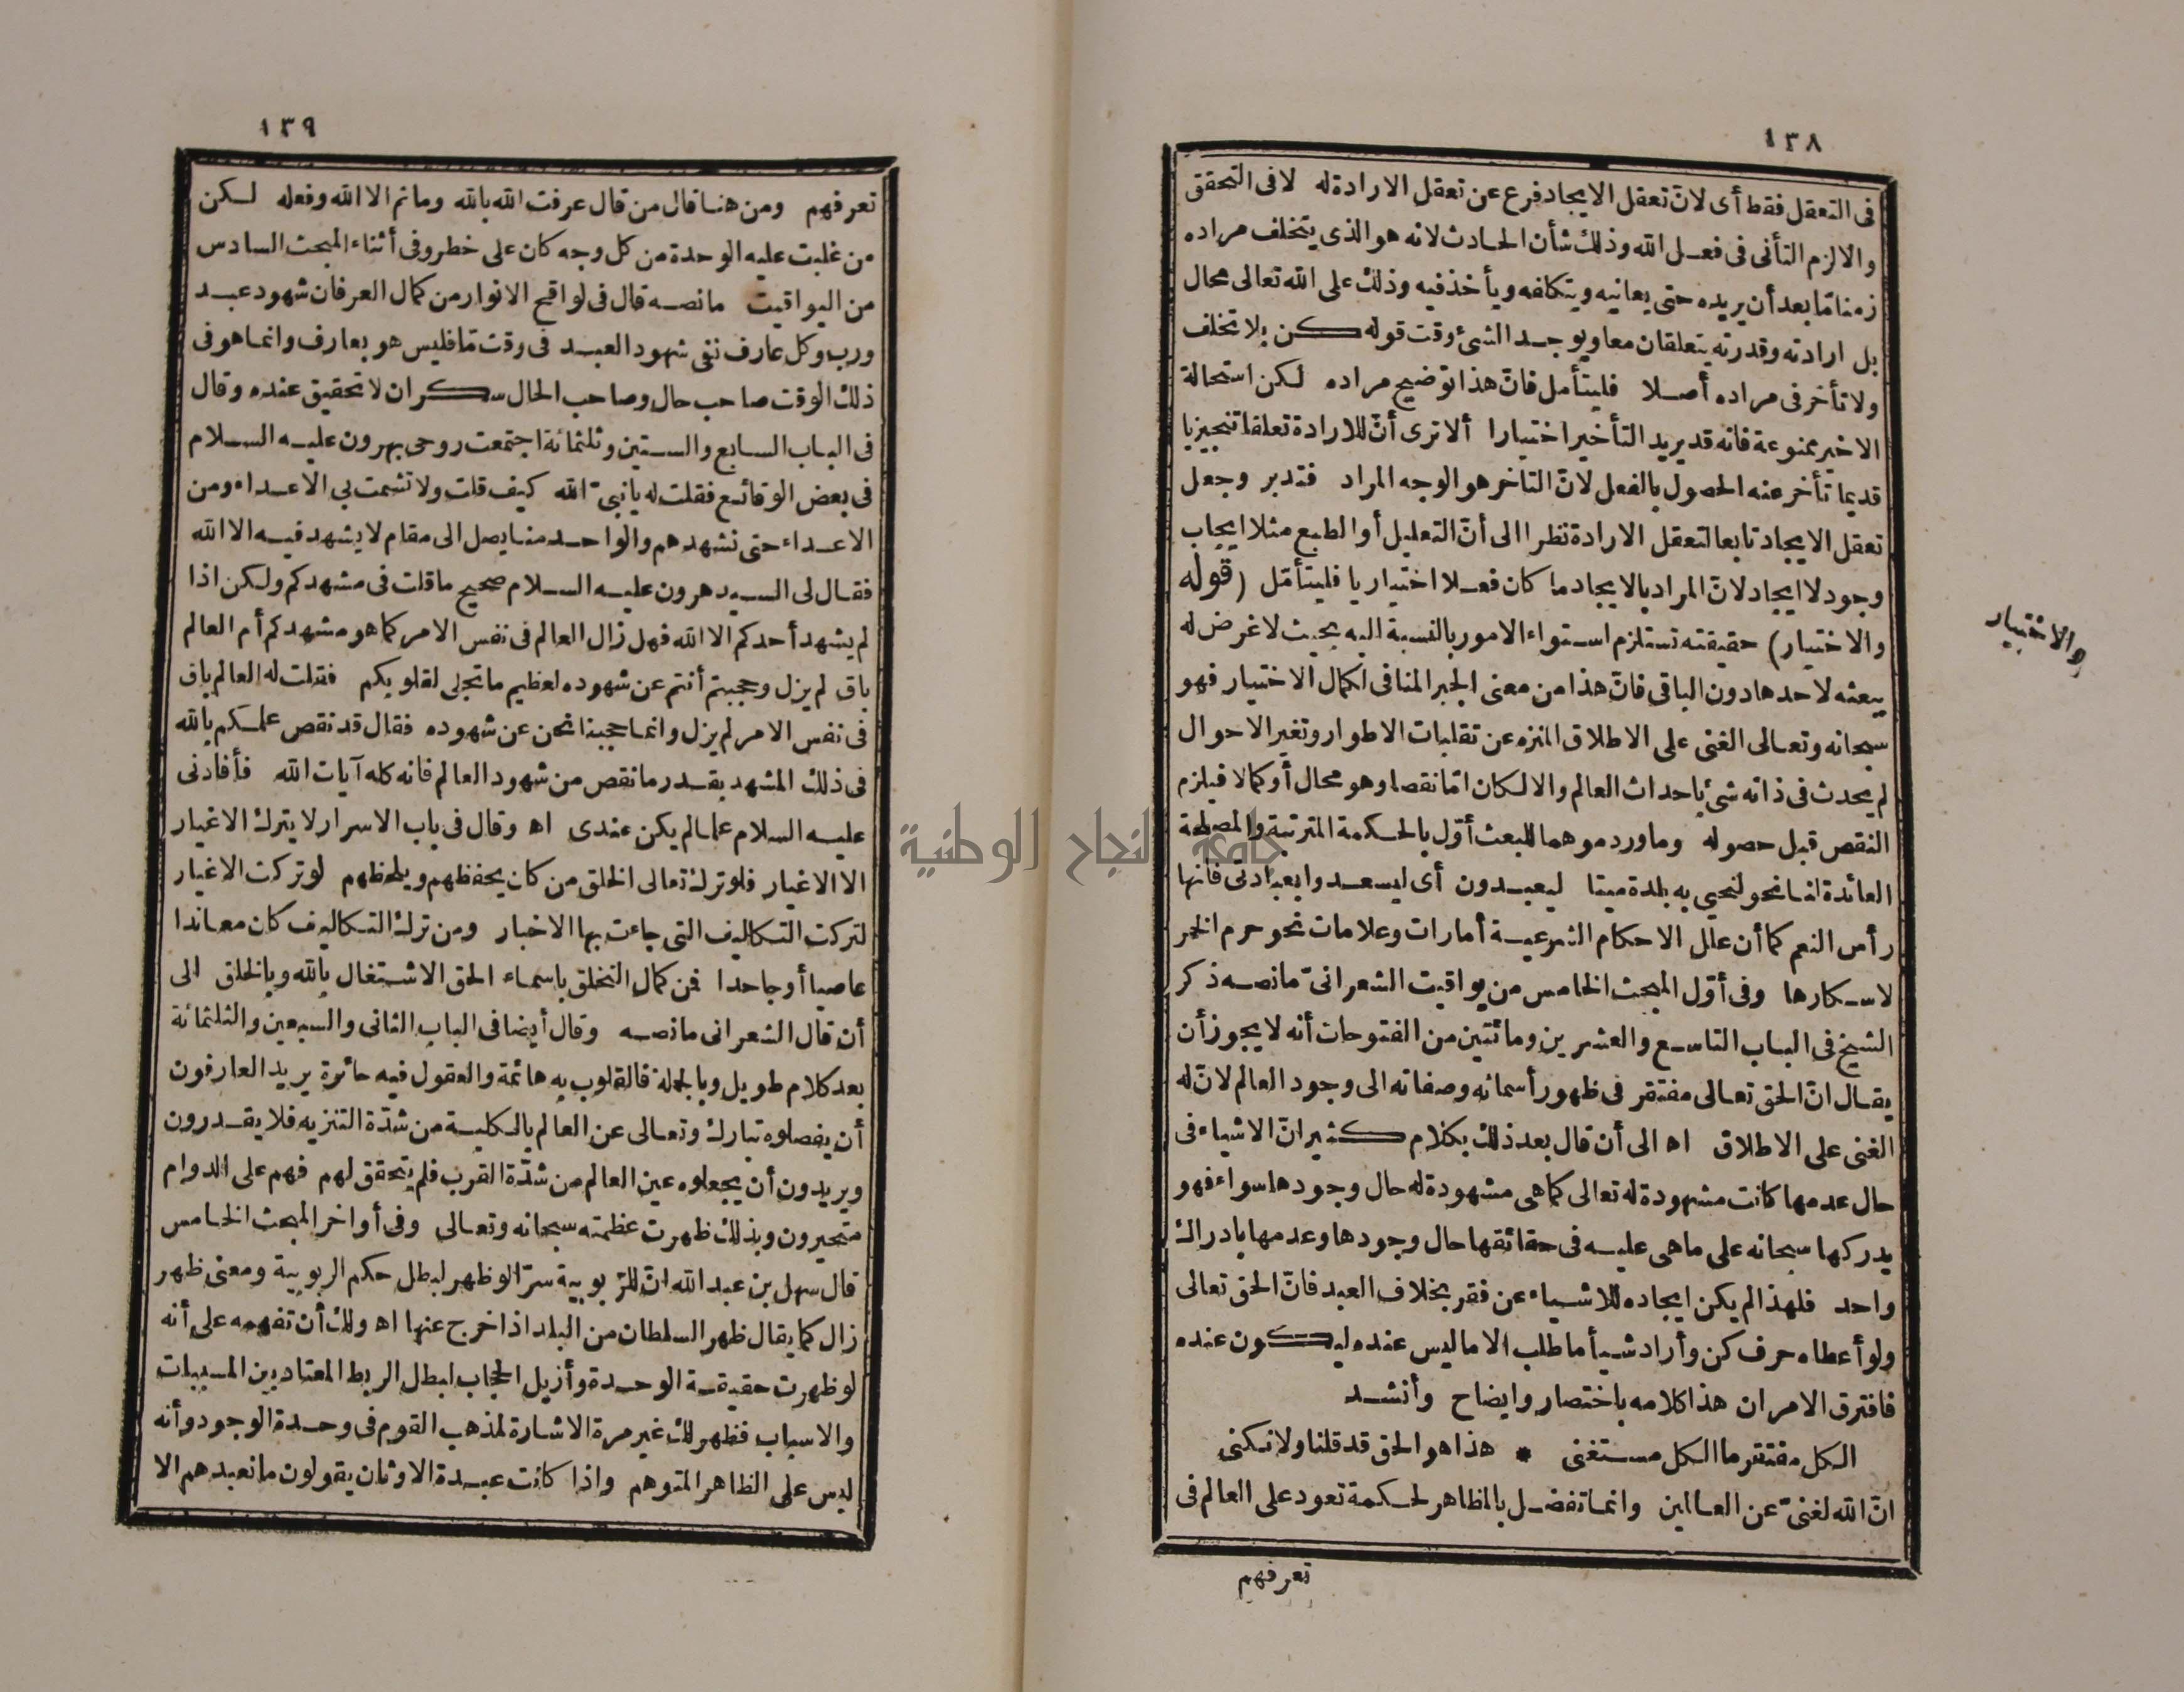 ١٣٨
فى التعقل فقط أى لانّ تعقل الايجاد فرع عن تعقل الارادة له لا فى التحقق
والا لزم التأنى فى فعل الله وذلك شأن الحادث لانه هو الذى يتخلف مراده
زمنا مّا بعد أن يريده حتى يعانيه ويتكلفه ويأخذ فيه وذلك على الله تعالى محال
بل ارادته وقدرته يتعلقان معا ويوجد الشئ وقت قوله كن بلا تخلف
ولا تأخر فى مراده أصلا فليتأمل فانّ هذا توضيح مراده لكن استحالة
الاخير ممنوعة فانه قد يريد التأخير اختيارا ألا ترى أنّ للارادة تعلقا تنجيزيا
قديما تأخر عنه الحصول بالفعل لانّ التاخر هو الوجه المراد فتدبر وجعل
تعقل الايجاد تابعا لتعقل الارادة نظرا الى أنّ التعليل أو الطبع مثلا ايجاب
وجود لا ايجاد لانّ المراد بالايجاد ما كان فعلا اختياريا فليتأمّل (قوله
والاختيار) حقيقته تستلزم استواء الامور بالنسبة اليه بحيث لا غرض له
والاختيار
يبعثه لاحدها دون الباقى فانّ هذا من معنى الجبر المنافى لكمال الاختيار فهو
سبحانه وتعالى الغنى على الاطلاق المنزه عن تقلبات الاطوار وتغير الاحوال
لم يحدث فى ذاته شئ باحداث العالم والا لكان امّا نقصا وهو محال أو كمالا فيلزم
النقص قبل حصوله وما ورد موهما للبعث أوّل بالحكمة المترتبة والمصلحة
العائدة لنا نحو لنحيى به بلدة ميتا ليعبدون أى ليسعدوا بعبادتى فانها
رأس النعم كما أن علل الاحكام الشرعية أمارات وعلامات نحو حرم الخمر
لاسكارها وفى أوّل المبحث الخامس من يواقيت الشعرانىّ ما نصه ذكر
الشيخ فى الباب التاسع والعشرين ومائتين من الفتوحات أنه لا يجوز أن
يقال انّ الحق تعالى مفتقر فى ظهور أسمائه وصفاته الى وجود العالم لانّ له
الغنى على الاطلاق اه الى أن قال بعد ذلك بكلام كثير انّ الاشياء فى
حال عدمها كانت مشهودة له تعالى كما هى مشهودة له حال وجودها سواء فهو
يدركها سبحانه على ما هى عليه فى حقائقها حال وجودها وعدمها بادراك
واحد فلهذا لم يكن ايجاده للاشياء عن فقر بخلاف العبد فانّ الحق تعالى
ولو أعطاه حرف كن وأراد شيأ ما طلب الا ما ليس عنده ليكون عنده
فافترق الامران هذا كلامه باختصار وايضاح وأنشد
الكل مفتقر ما الكل مستغنى * هذا هو الحق قد قلنا ولا نكنى
انّ الله لغنىّ عن العالمين وانما تفضل بالمظاهر لحكمة تعود على العالم فى
تعرفهم
١٣٩
تعرفهم ومن هنا قال من قال عرفت الله بالله وما ثم الا الله وفعله لكن
من غلبت عليه الوحدة من كل وجه كان على خطر وفى أثناء المبحث السادس
من اليواقيت ما نصه قال فى لواقح الانوار من كمال العرفان شهود عبد
ورب وكل عارف نفى شهود العبد فى وقت مّا فليس هو بعارف وانما هو فى
ذلك الوقت صاحب حال وصاحب الحال سكران لا تحقيق عنده وقال
فى الباب السابع والستين وثلثمائة اجتمعت روحى بهرون عليه السلام
فى بعض الوقائع فقلت له يا نبىّ الله كيف قلت ولا تشمت بى الاعداء ومن
الاعداء حتى نشهدهم والواحد منا يصل الى مقام لا يشهد فيه الا الله
فقال لى السيد هرون عليه السلام صحيح ما قلت فى مشهدكم ولكن اذا
لم يشهد أحدكم الا الله فهل زال العالم فى نفس الامر كما هو مشهدكم أم العالم
باق لم يزل وحجبتم أنتم عن شهوده لعظيم ما تجلى لقلوبكم فقلت له العالم باق
فى نفس الامر لم يزل وانما حجبنا نحن عن شهوده فقال قد نقص علمكم بالله
فى ذلك المشهد بقدر ما نقص من شهود العالم فانه كله آيات الله فأفادنى
عليه السلام علما لم يكن عندى اه وقال فى باب الاسرار لا يترك الاغيار
الا الاغيار فلو ترك تعالى الخلق من كان يحفظهم ويلحظهم لو تركت الاغيار
لتركت التكاليف التى جاءت بها الاخبار ومن ترك التكاليف كان معاندا
عاصيا أو جاحدا فمن كمال التخلق باسماء الحق الاشتغال بالله وبالخلق الى
أن قال الشعرانى ما نصه وقال أيضا فى الباب الثانى والسبعين والثلثمائة
بعد كلام طويل وبالجملة فالقلوب به هائمة والعقول فيه حائرة يريد العارفون
أن يفصلوه تبارك وتعالى عن العالم بالكلية من شدّة التنزيه فلا يقدرون
ويريدون أن يجعلوه عين العالم من شدّة القرب فلم يتحقق لهم فهم على الدوام
متحيرون وبذلك ظهرت عظمته سبحانه وتعالى وفى أواخر المبحث الخامس
قال سهل بن عبد الله انّ للربوبية سرّا لو ظهر لبطل حكم الربوبية ومعنى ظهر
زال كما يقال ظهر السلطان من البلد اذا خرج عنها اه ولك أن تفهمه على أنه
لو ظهرت حقيقة الوحدة وأزيل الحجاب لبطل الربط المعتاد بين المسببات
والاسباب فظهر لك غير مرة الاشارة لمذهب القوم فى وحدة الوجود وأنه
ليس على الظاهر المتوهم واذا كانت عبدة الاوثان يقولون ما نعبدهم الا
جامعة النجاح الوطنية